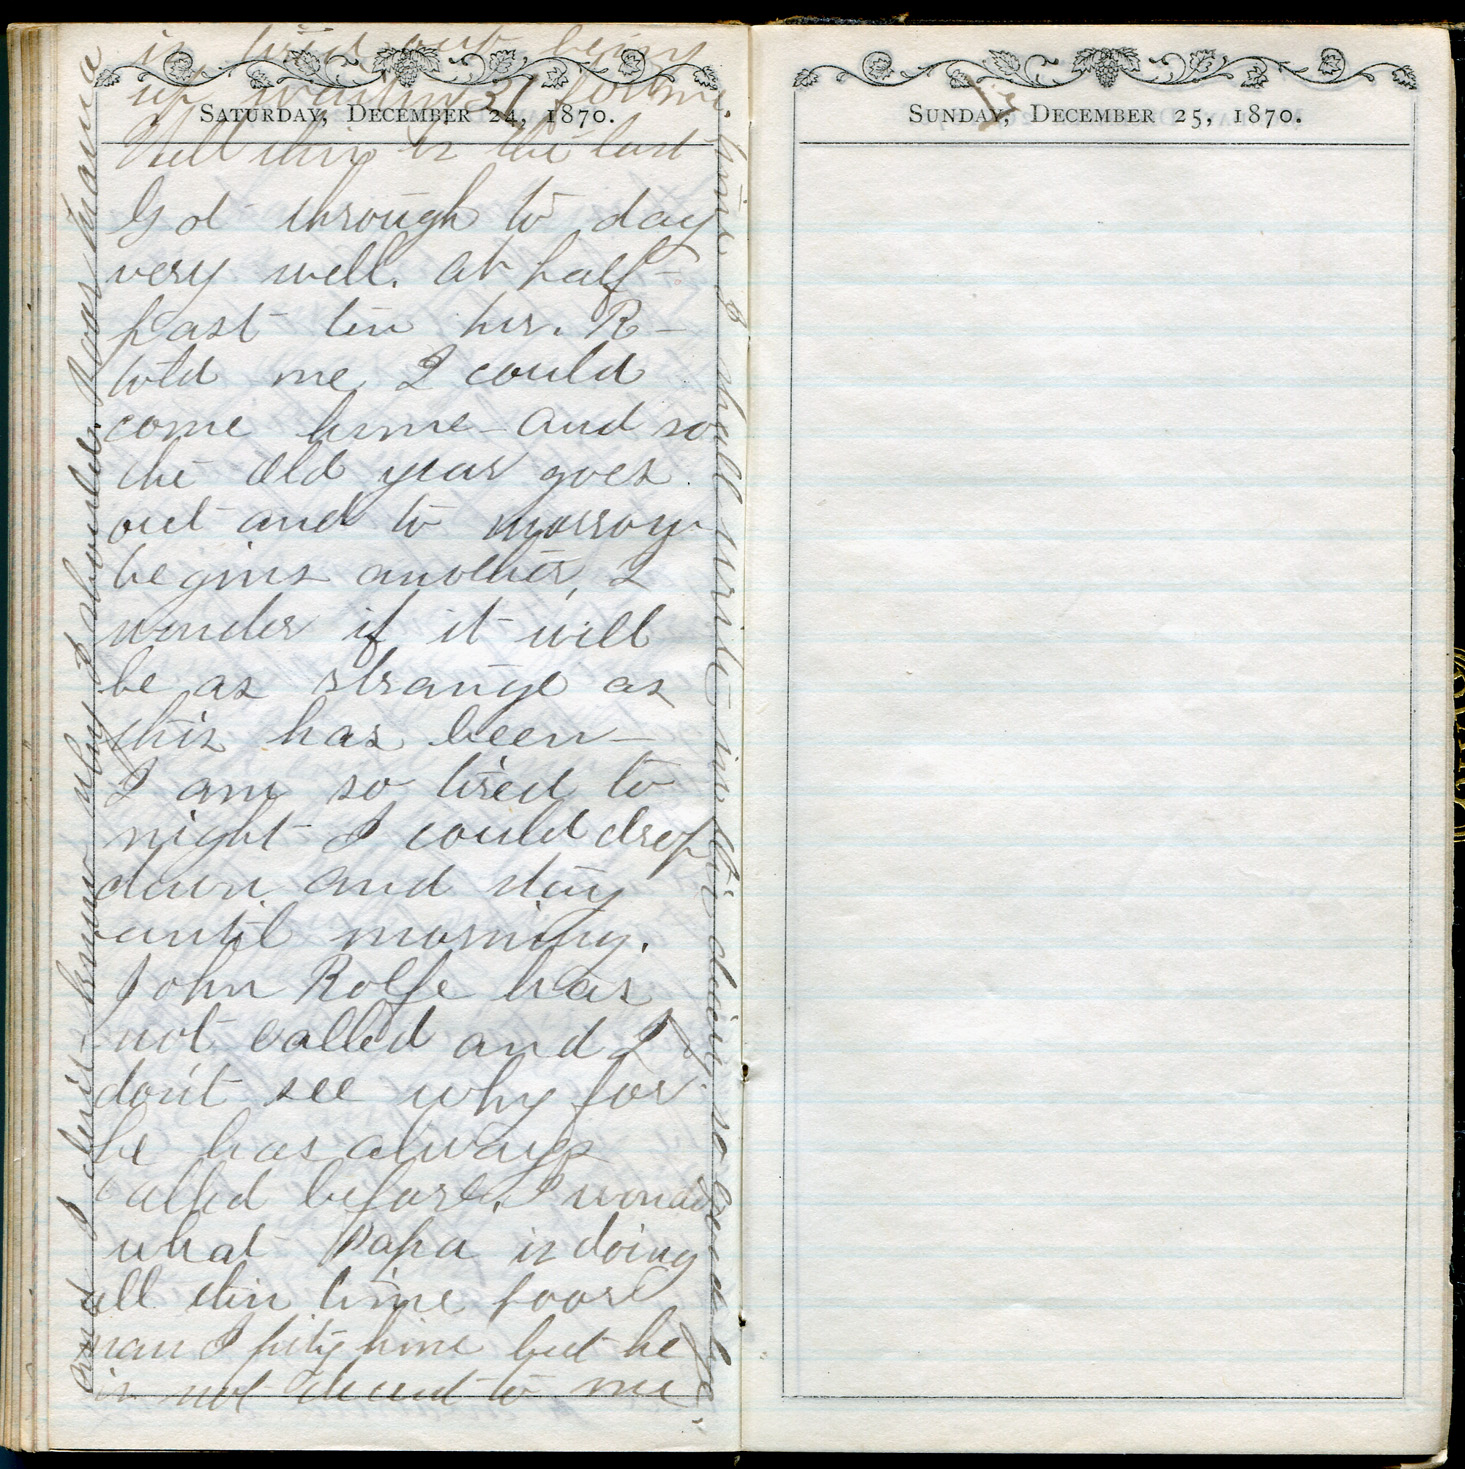 Saturday, December 24, 1870.
31
Got through to day
very well. at half
past ten hr. R—
told me I could
come home— and so
the old year goes
out and to morrow
begins another, I
wonder if it will
be as strange as
this has been—
I am so tired to
night— I could drop
down and stay
until morning.
John Rolfe has
not called and I
don't see why for
he has always
called before. I wonder
what Papa is doing
all this time poor
man I pity him but he
is not decent to me
and I don't know why I should. Poor mama
is tired out being
up waiting for me.
Well this is the last
time I shall write in this diary. so good bye.
Sunday, December 25, 1870.